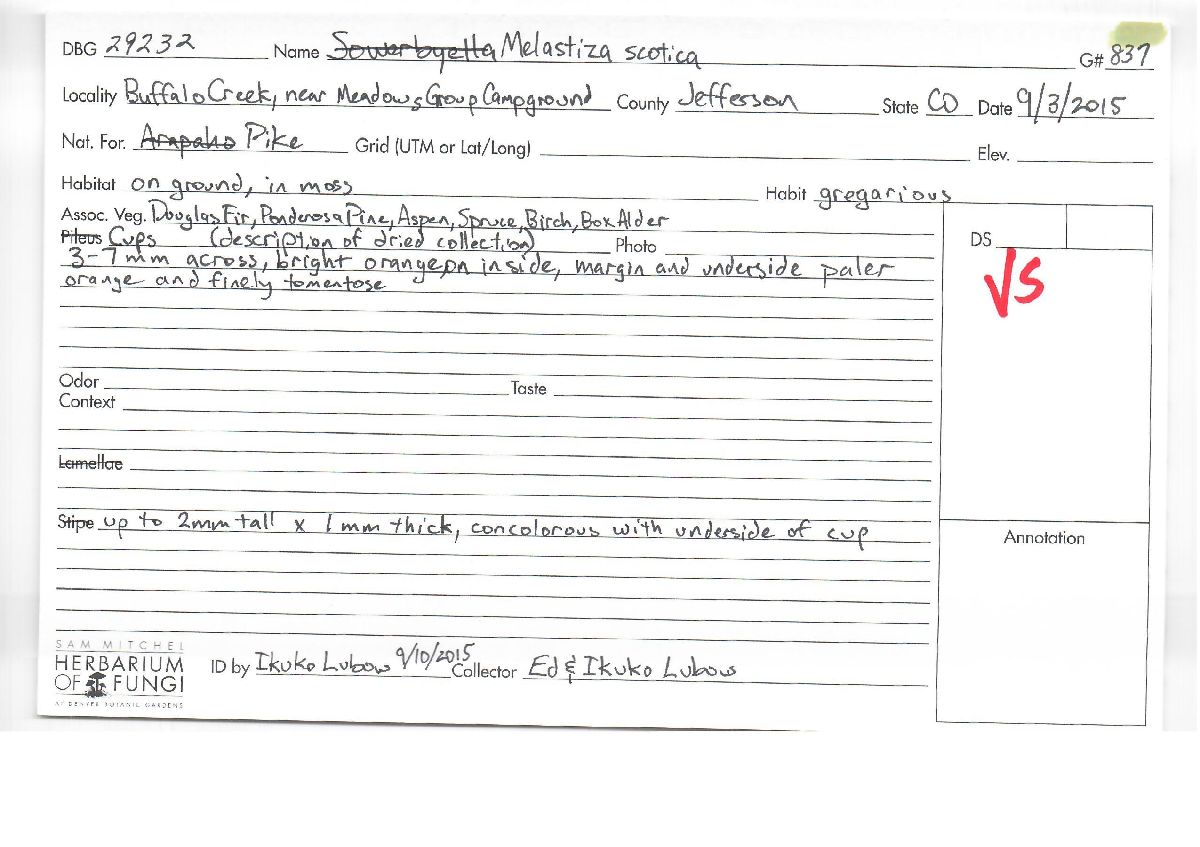 DBG 29232 Name Sowerbyetta Melastiza scotica G# 837
Locality Buffalo Creek, near Meadows Group Campground County Jefferson State CO Date 9/3/2015
Nat. For. Arapaho Pike Grid (UTM or Lat/Long) Elev.
Habitat on ground, in moss Habit gregarious
Assoc. Veg. Douglas Fir, Ponderosa Pine, Aspen, Spruce, Birch, Box Alder
Pileus Cups (description of dried collection) Photo DS
3-7mm across, bright orange on inside, margin and underside paler
orange and finely tomentose
VS
Odor Taste
Context
Lamellae
Stipe up to 2mm tall x 1mm thick, concolorous with underside of cup
Annotation
SAM MITCHEL
HERBARIUM
OF FUNGI
AT DENVER BOTANIC GARDENS
ID by Ikuko Lubow 9/10/2015 Collector Ed & Ikuko Lubow